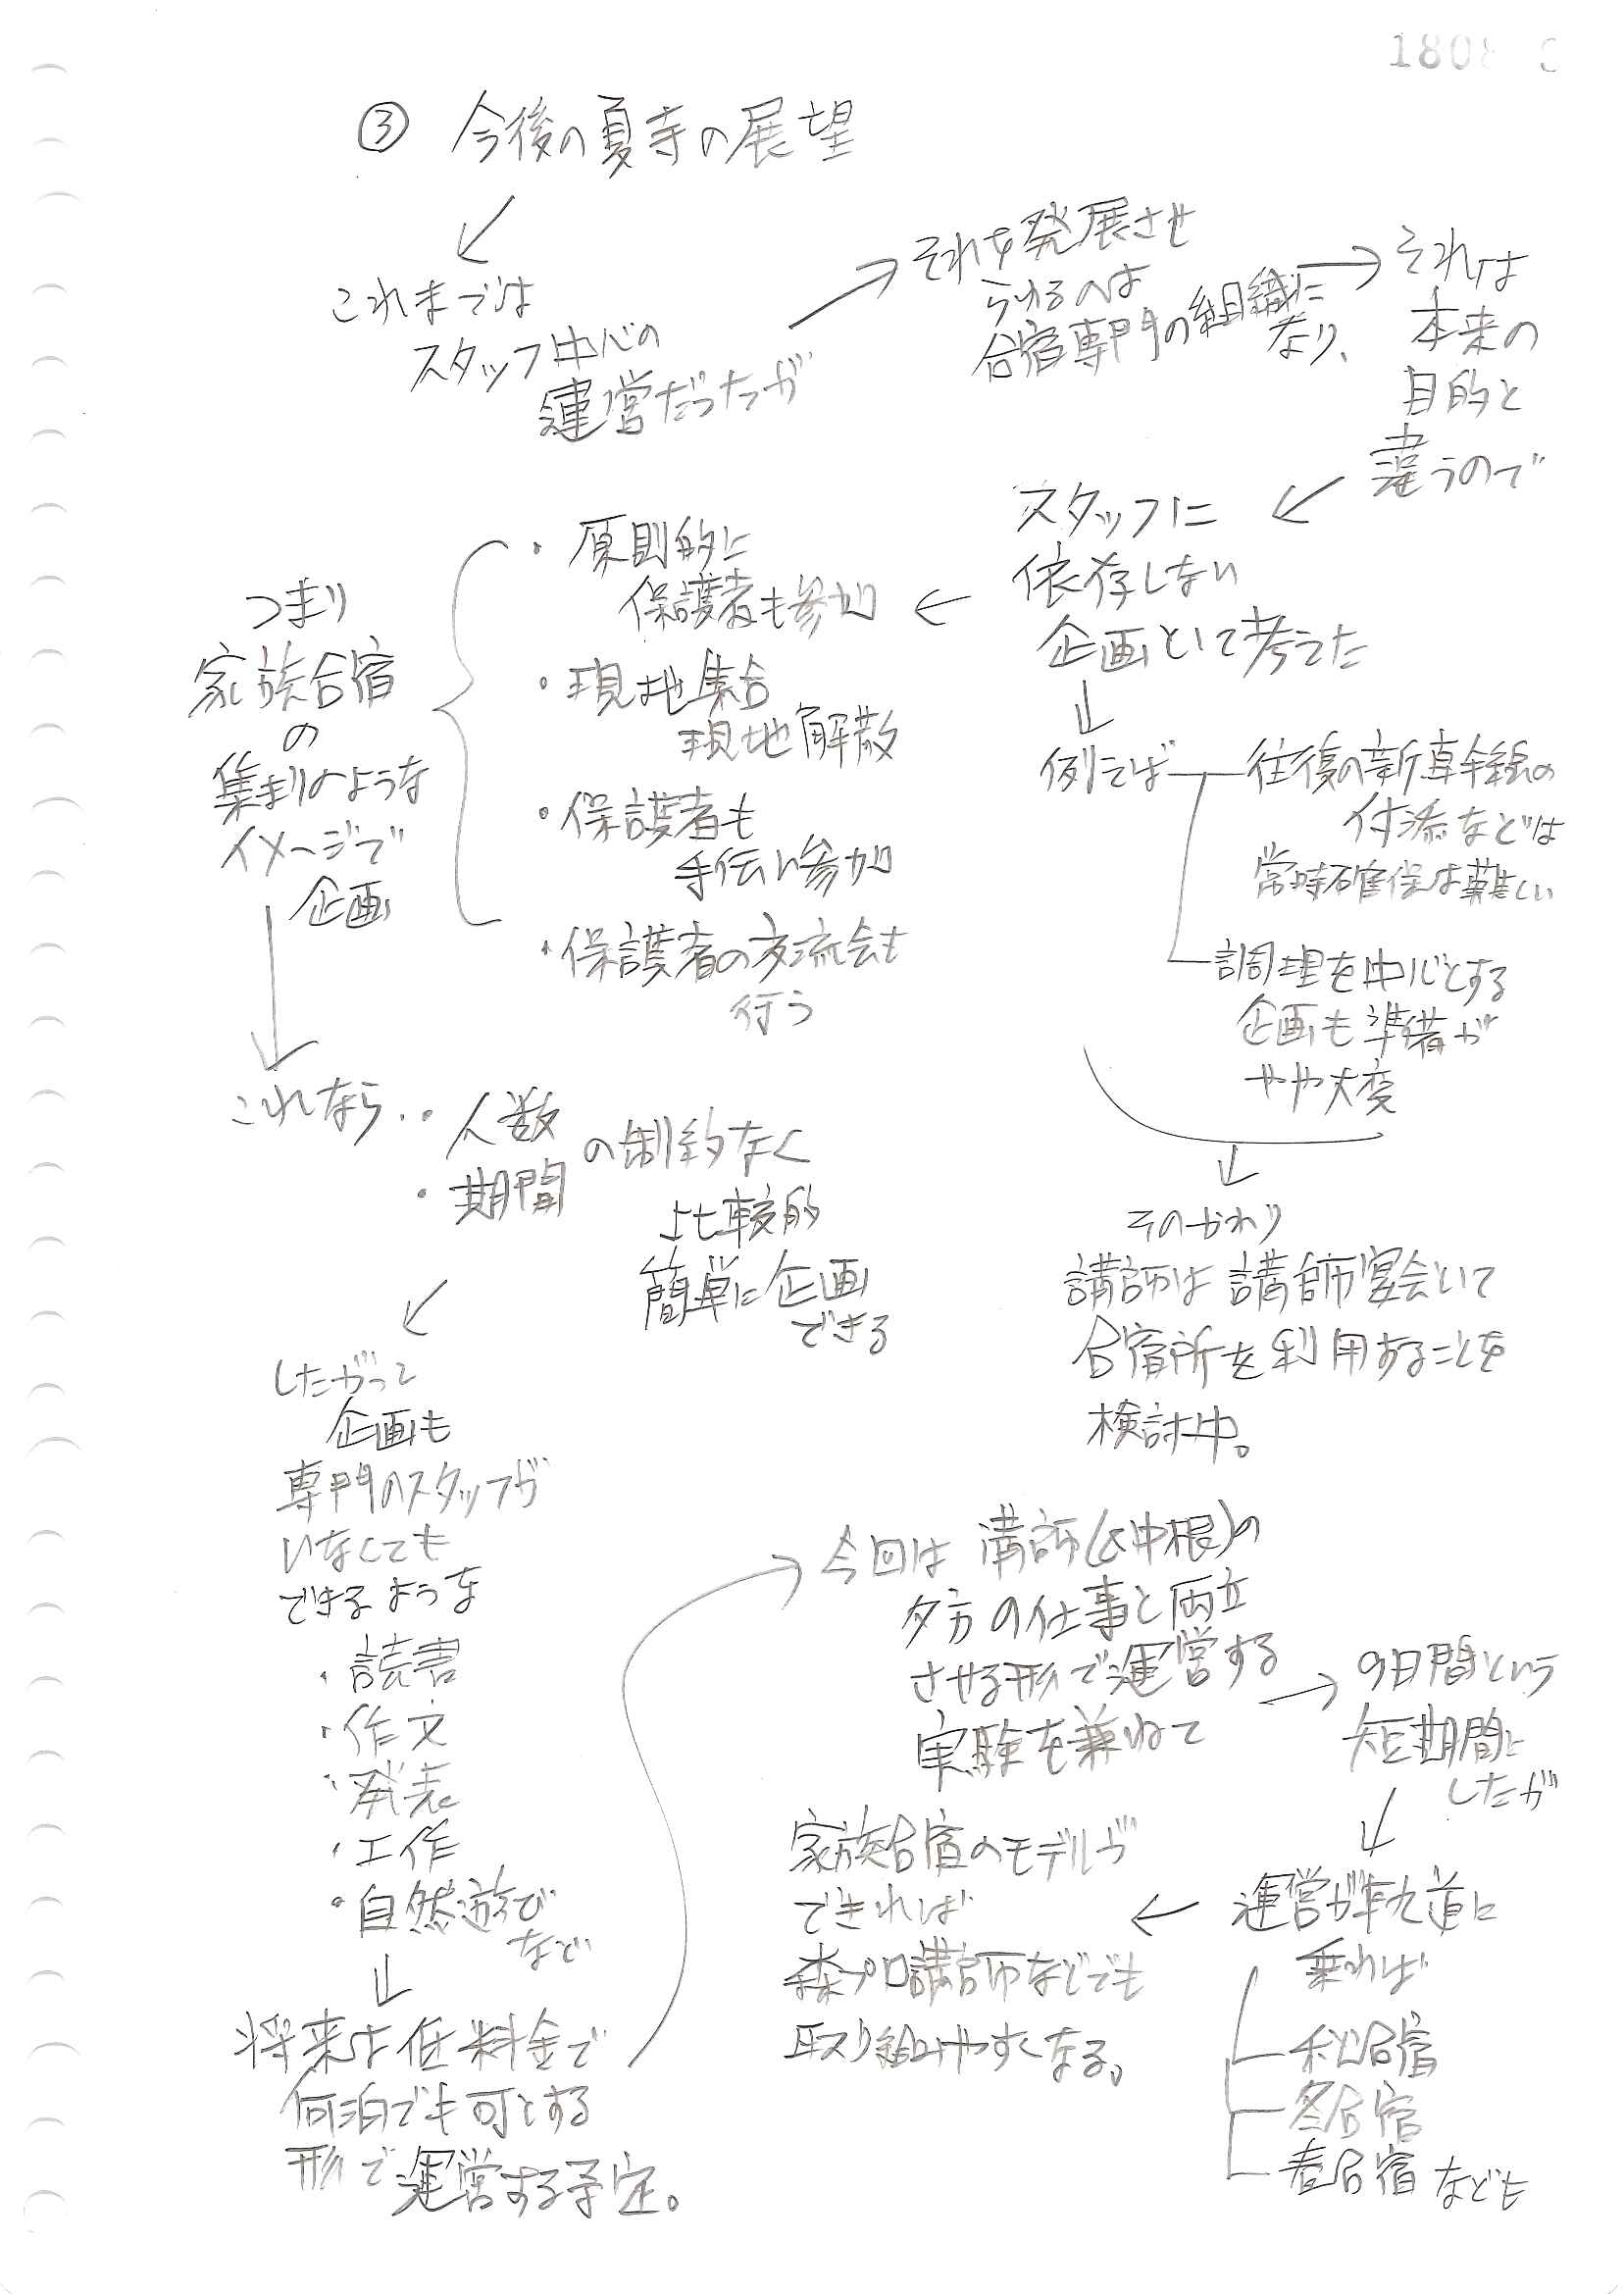 ③ 今後の夏寺の展望
これまでは
スタッフ中心の
運営だったが
それを発展させ
られるのは
合宿専門の組織に
なり、
それは
本来の
目的と
違うので
スタッフに
依存しない
企画として考えた
・原則的に
保護者も参加
・現地集合
現地解散
・保護者も
手伝い参加
・保護者の交流会も
行う
つまり
家族合宿
の
集まりのような
イメージで
企画
例えば
往復の新幹線の
付添などは
常時確保は難しい
調理を中心とする
企画も準備が
やや大変
そのかわり
講師は講師宴会として
合宿所を利用することを
検討中。
これなら
・人数
・期間
の制約なく
比較的
簡単に企画
できる
したがって
企画も
専門のスタッフが
いなくても
できるような
・読書
・作文
・発表
・工作
・自然遊び
など
将来は低料金で
何泊でも可とする
形で運営する予定。
今回は講師(中根)の
夕方の仕事と両立
させる形で運営する
実験を兼ねて
9日間という
短期間に
したが
運営が軌道に
乗れば
秋合宿
冬合宿
春合宿なども
家族合宿のモデルが
できれば
森プロ講師などでも
取り組みやすくなる。